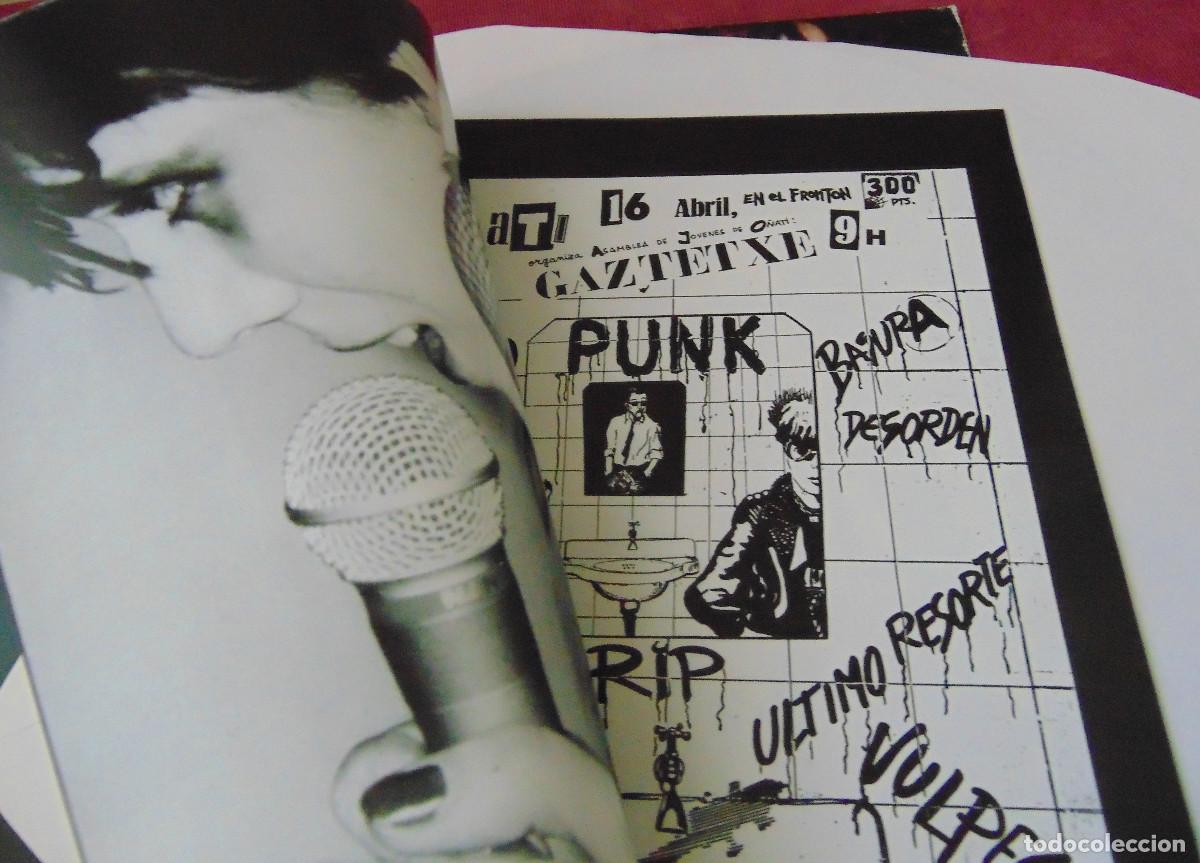 ATI 16 Abril, EN EL FRONTON 300 PTS.
organiza ASAMBLEA DE JOVENES DE OÑATI:
GAZTETXE 9H
PUNK
BAÑURA
Y
DESORDEN
RIP
ULTIMO RESORTE
VULPE
todocoleccion